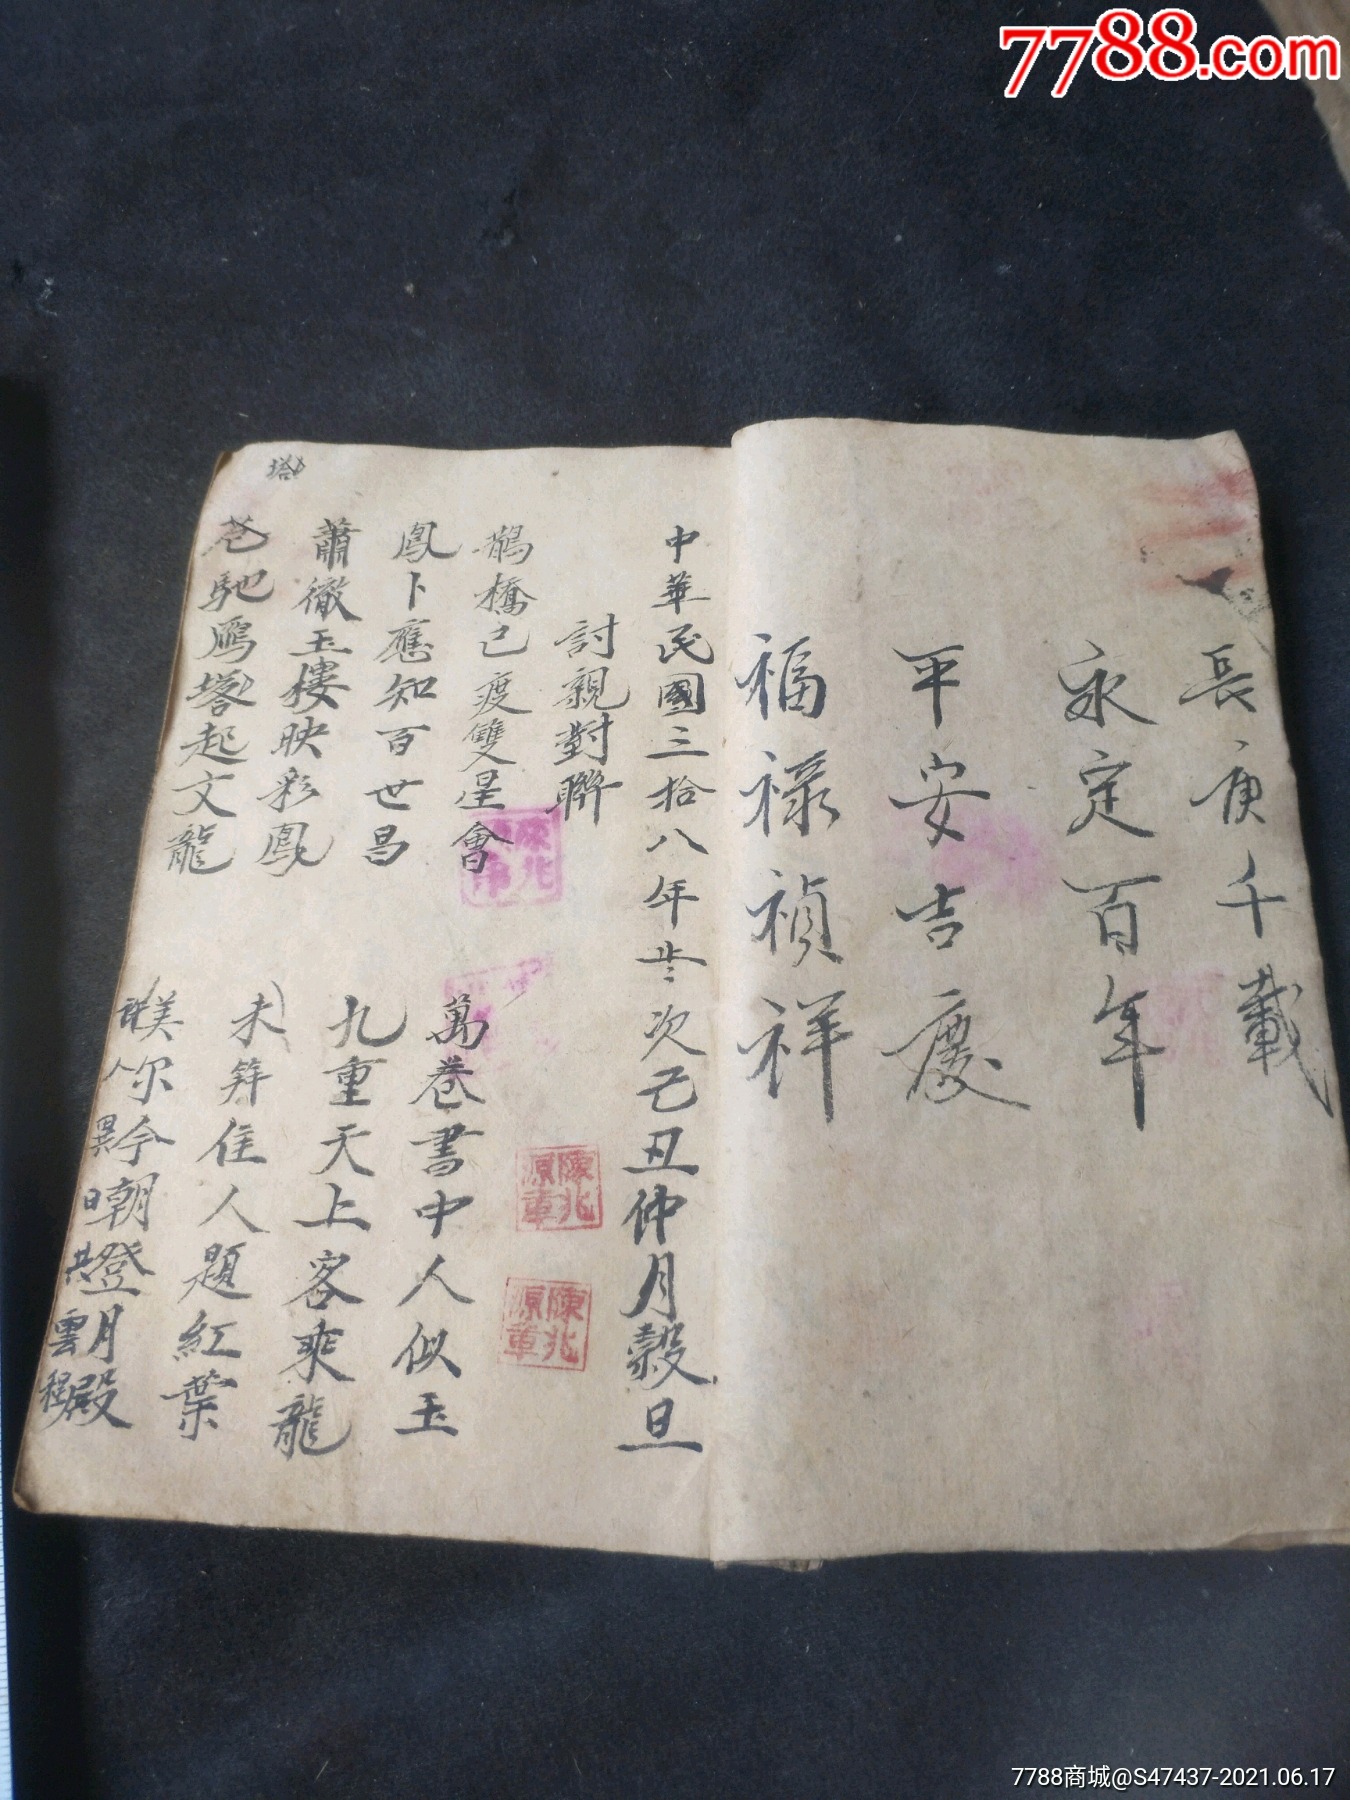 7788.com
長庚千載
永定百年
平安吉慶
福祿禎祥
中華民國三拾八年 次己丑仲月穀旦
討親對聯
鵲橋已度雙星會
鳳卜應知百世昌
蕭徹玉樓映彩鳳
馳鴈塔起文龍
塔
萬卷書中人似玉
九重天上客乘龍
未 佳人題紅葉
美尔今朝登月殿
人
日共雲
陳兆源章
陳兆源章
7788商城@S47437-2021.06.17